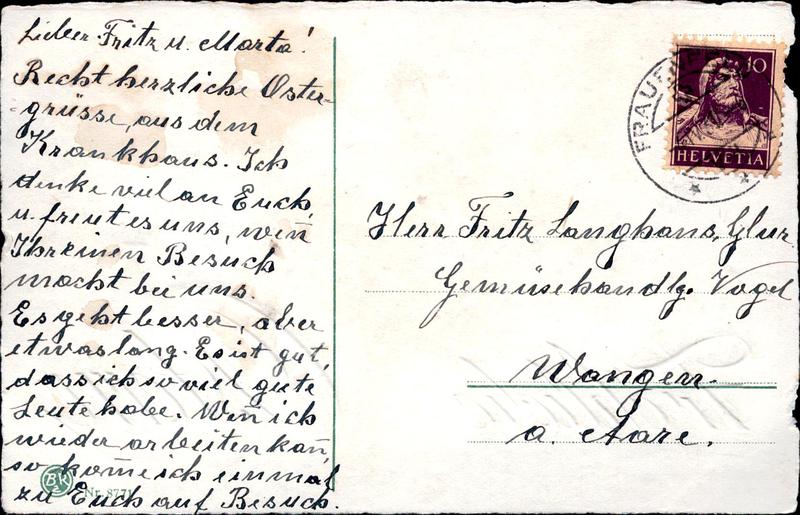 Lieber Fritz u. Marta!
Recht herzliche Oster-
grüsse, aus dem
Krankhaus. Ich
denke viel an Euch,
u. freut es uns, weñ
Ihr einen Besuch
macht bei uns.
Es geht besser, aber
etwas lang. Es ist gut,
dass ich so viel gute
Leute habe. Weñ ich
wieder arbeiten kañ,
so kom̃e ich einmal
zu Euch auf Besuch.
BK
Nr. 8771
FRAUENFELD
10
HELVETIA
Herr Fritz Langhans, Glur
Gemüsehandlg. Vogel
Wangen
a. Aare.